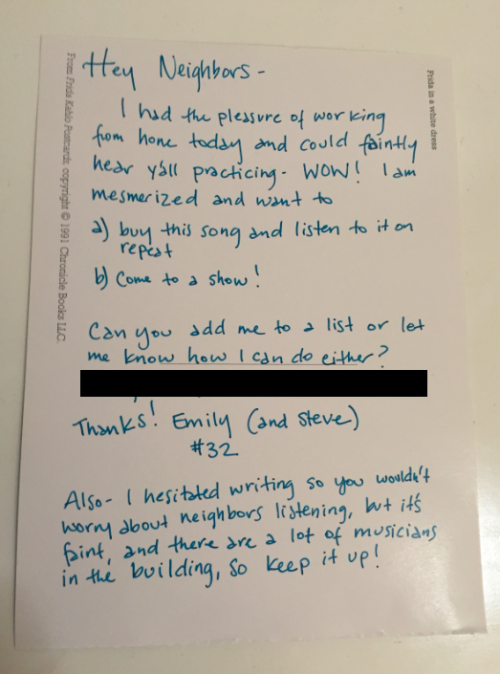 Hey Neighbors-
I had the pleasure of working
from home today and could faintly
hear y'all practicing- WOW! I am
mesmerized and want to
a) buy this song and listen to it on
repeat
b) Come to a show!
Can you add me to a list or let
me know how I can do either?
Thanks! Emily (and Steve)
#32
Also- I hesitated writing so you wouldn't
worry about neighbors listening, but it's
faint, and there are a lot of musicians
in the building, so keep it up!
From Frida Kahlo Postcards. copyright © 1991 Chronicle Books LLC.
Frida in a white dress